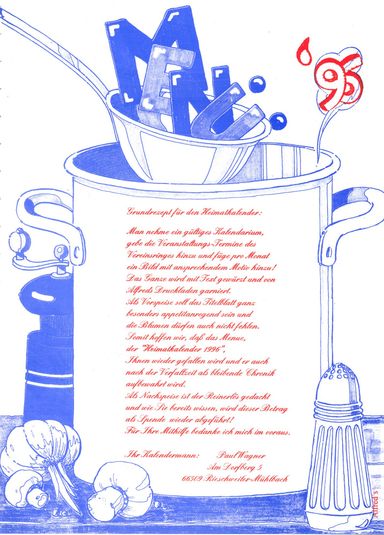 MENÜ
'96
Grundrezept für den Heimatkalender:
Man nehme ein gültiges Kalendarium,
gebe die Veranstaltungs-Termine des
Vereinsringes hinzu und füge pro Monat
ein Bild mit ansprechendem Motiv hinzu!
Das Ganze wird mit Text gewürzt und von
Alfreds Druckladen garniert.
Als Vorspeise soll das Titelblatt ganz
besonders appetitanregend sein und
die Blumen dürfen auch nicht fehlen.
Somit hoffen wir, daß das Menue,
der "Heimatkalender 1996",
Ihnen wieder gefallen wird und er auch
nach der Verfallzeit als bleibende Chronik
aufbewahrt wird.
Als Nachspeise ist der Reinerlös gedacht
und wie Sie bereits wissen, wird dieser Betrag
als Spende wieder abgeführt!
Für Ihre Mithilfe bedanke ich mich im voraus.
Ihr Kalendermann: Paul Wagner
Am Dorfberg 5
66509 Rieschweiler-Mühlbach
Alfred's